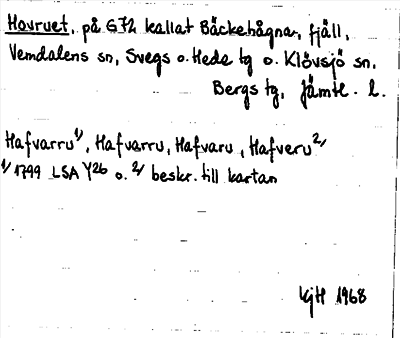 Hovruet, på G72 kallat Bäckehågna, fjäll,
Vemdalens sn, Svegs o. Hede tg o. Klövsjö sn,
Bergs tg, Jämtl. l.
Hafvarru 1/, Hafvarru, Hafvaru, Hafveru 2/
1/ 1799 LSA Y26 o. 2/ beskr. till kartan
GjH 1968